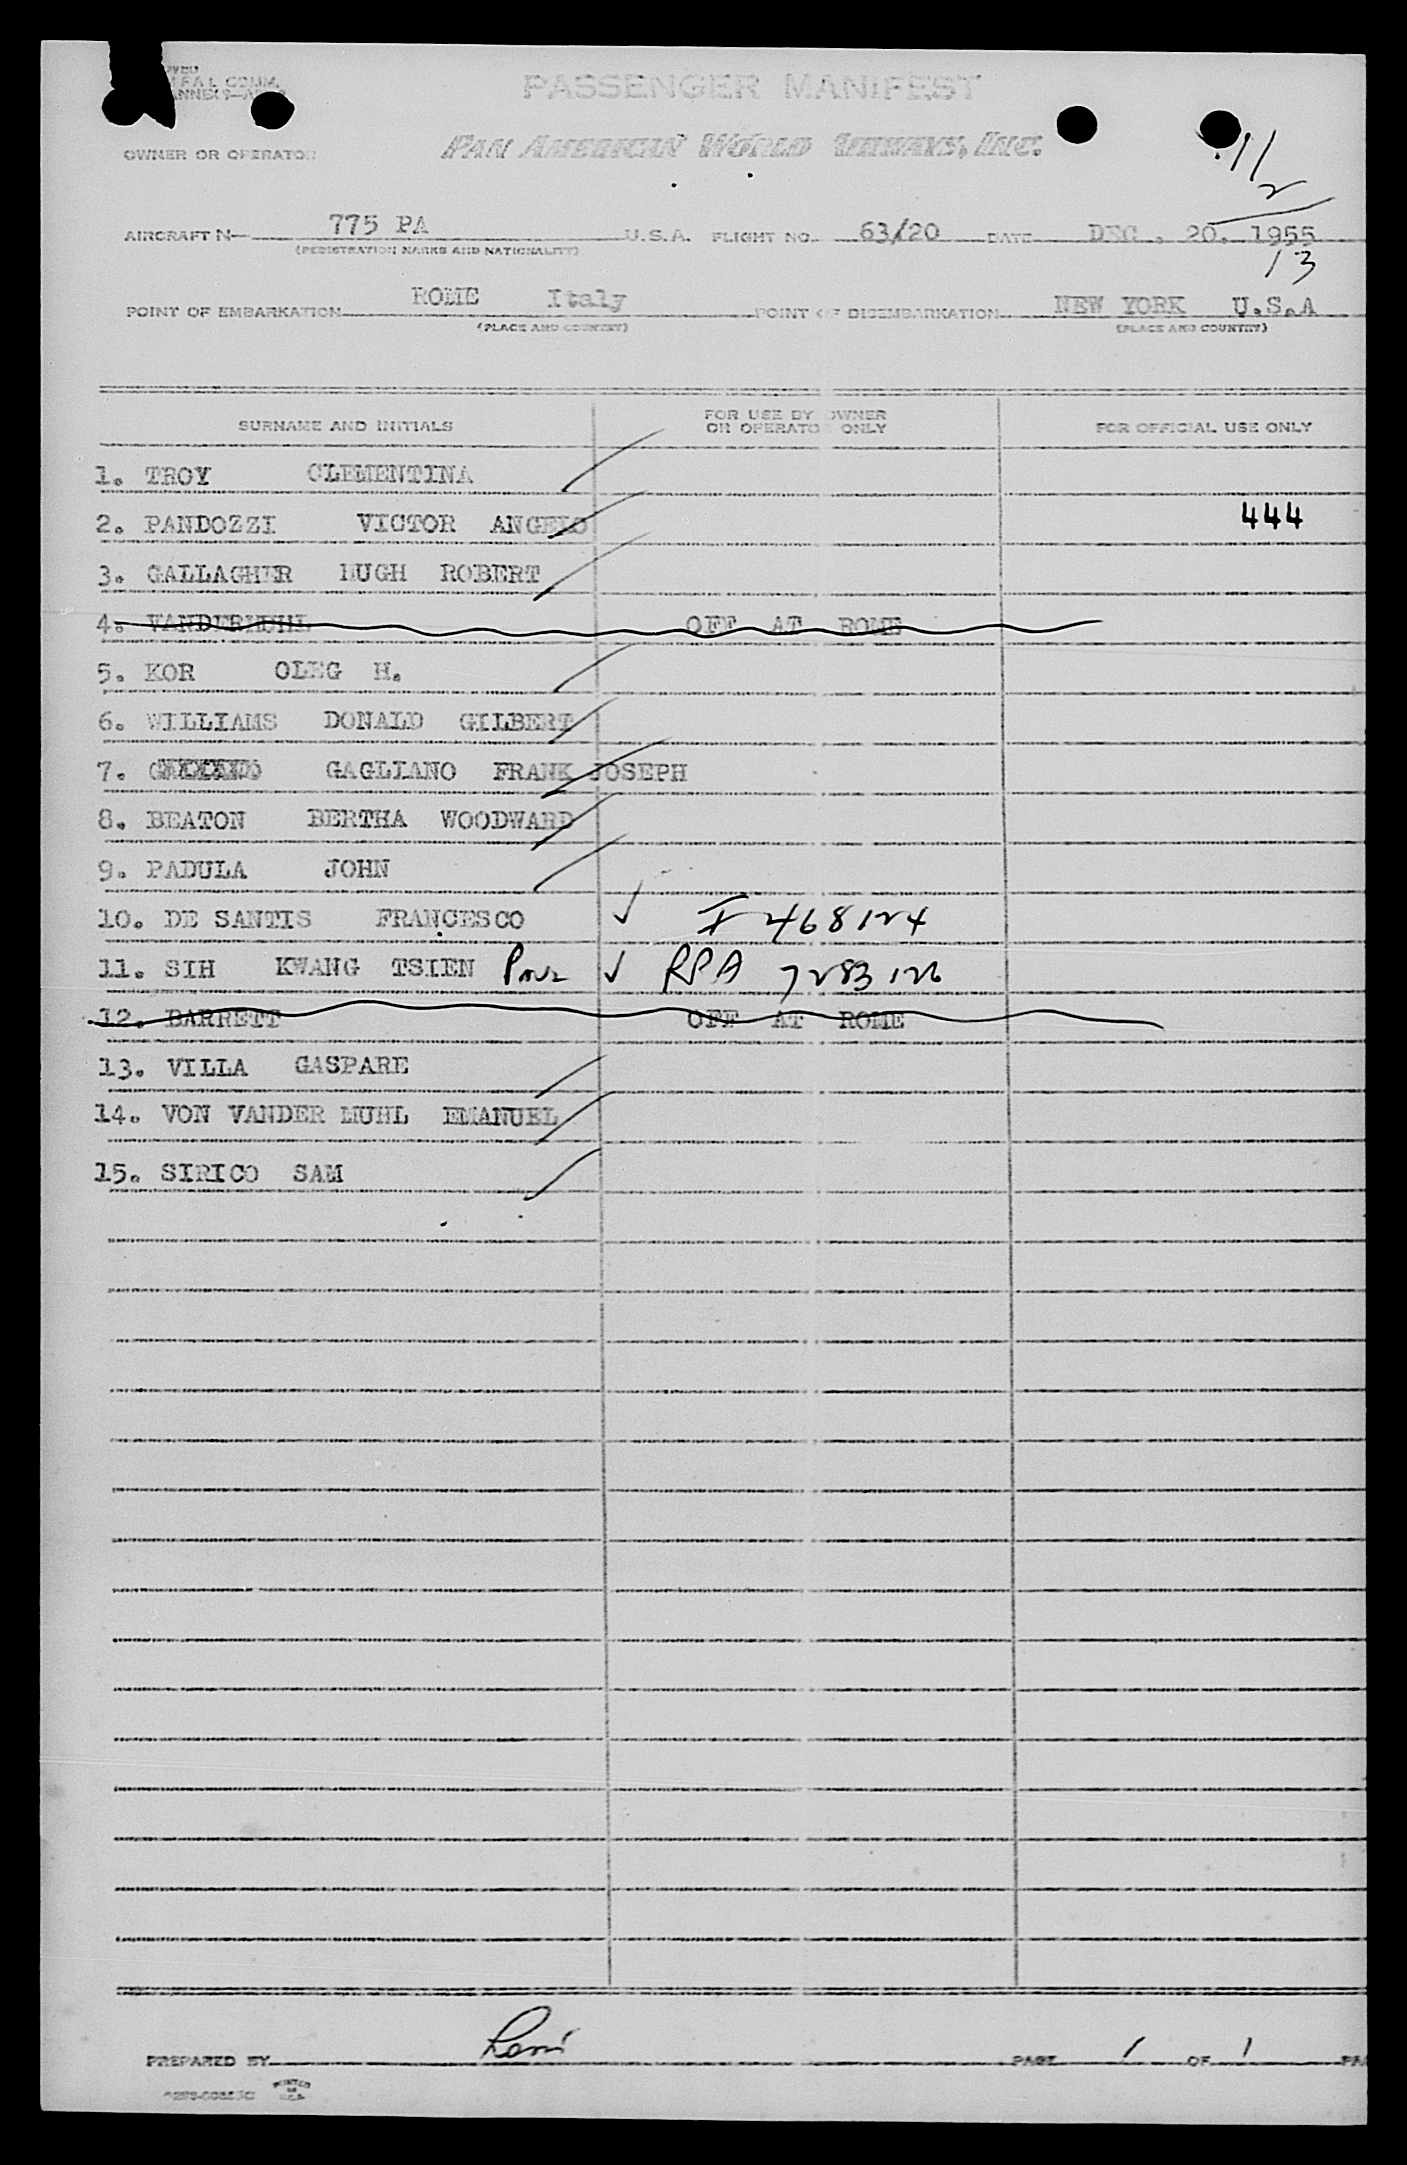 F.A.L. COMM.
ANNEX 9—
PASSENGER MANIFEST
OWNER OR OPERATOR PAN AMERICAN WORLD AIRWAYS, INC.
11/2
AIRCRAFT N— 775 PA U.S.A. FLIGHT NO. 63/20 DATE DEC . 20. 1955
(REGISTRATION MARKS AND NATIONALITY)
13
POINT OF EMBARKATION ROME Italy POINT OF DISEMBARKATION NEW YORK U.S.A
(PLACE AND COUNTRY) (PLACE AND COUNTRY)
SURNAME AND INITIALS FOR USE BY OWNER OR OPERATOR ONLY FOR OFFICIAL USE ONLY
1. TROY CLEMENTINA
2. PANDOZZI VICTOR ANGELO 444
3. GALLAGHER HUGH ROBERT
4. VANDERMUHL OFF AT ROME
5. KOR OLEG H.
6. WILLIAMS DONALD GILBERT
7. GAGLIANO FRANK JOSEPH
8. BEATON BERTHA WOODWARD
9. PADULA JOHN
10. DE SANTIS FRANCESCO ✓ I 468124
11. SIH KWANG TSIEN Paul ✓ RPA 7283126
12. BARRETT OFF AT ROME
13. VILLA GASPARE
14. VON VANDER MUHL EMANUEL
15. SIRICO SAM
PREPARED BY PAGE 1 OF 1
PRINTED IN U.S.A.